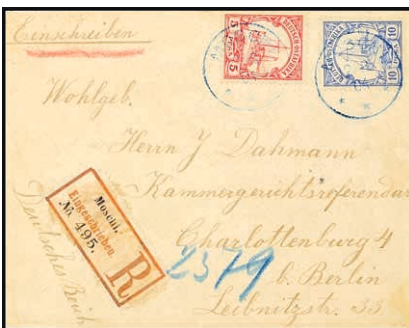 Einschreiben
5 5
DEUTSCH-OSTAFRIKA
10 10
Wohlgeb.
Herrn J Dahmann
Kammergerichtsreferendar
Charlottenburg 4
b. Berlin
Leibnitzstr. 33
Moschi.
Eingeschrieben.
No. 495.
R
2379
Deutsches Reich